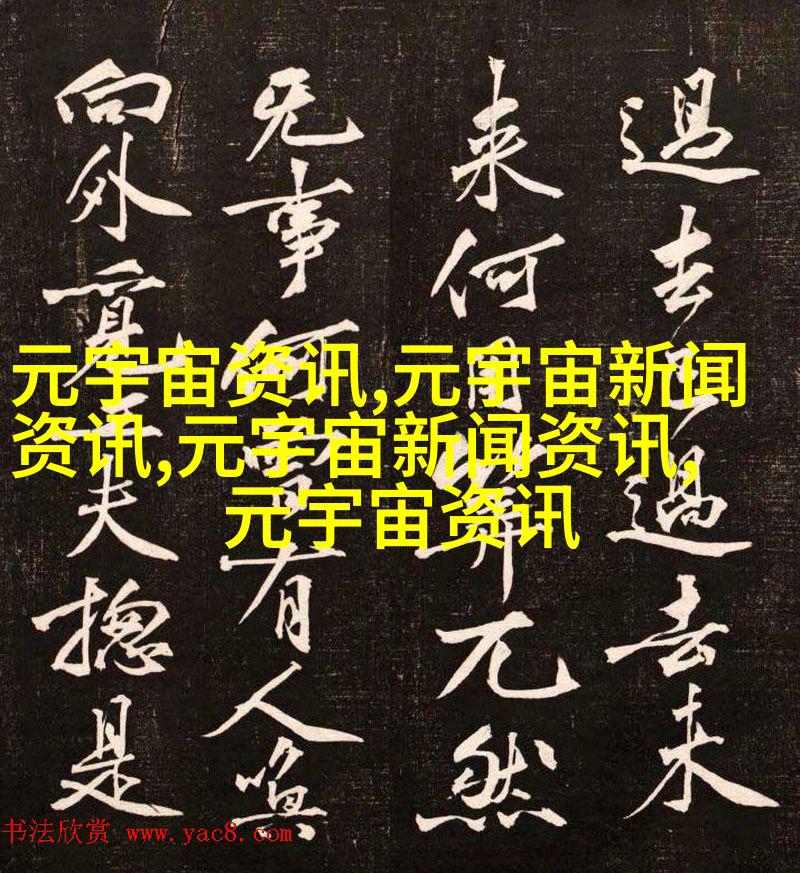 過去已過去未
来何用筭兀然
无事何曾有人喚
向外覓工夫揔是
元宇宙资讯,元宇宙新闻
资讯,元宇宙新闻资讯,
元宇宙资讯
书法欣赏 www.yac8.com